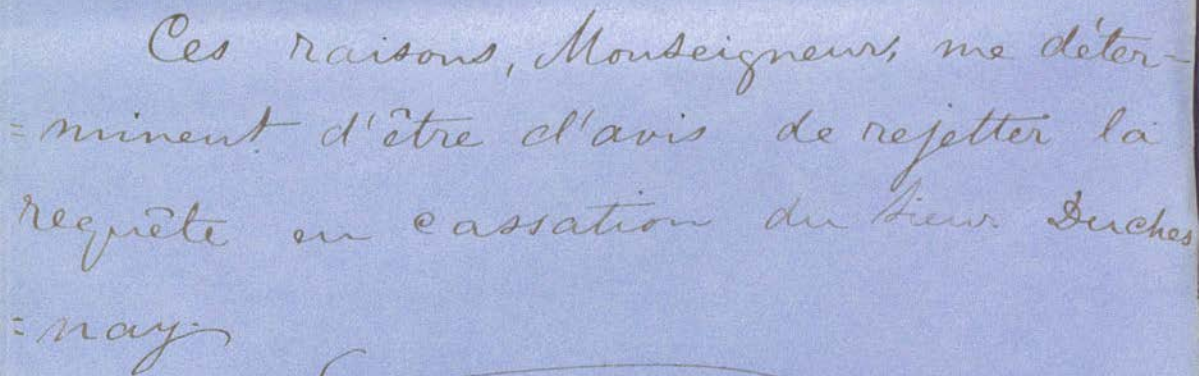 Ces raisons, Monseigneur, me déter-
=minent d'être d'avis de rejetter la
requête en cassation du Sieur Duches
=nay.